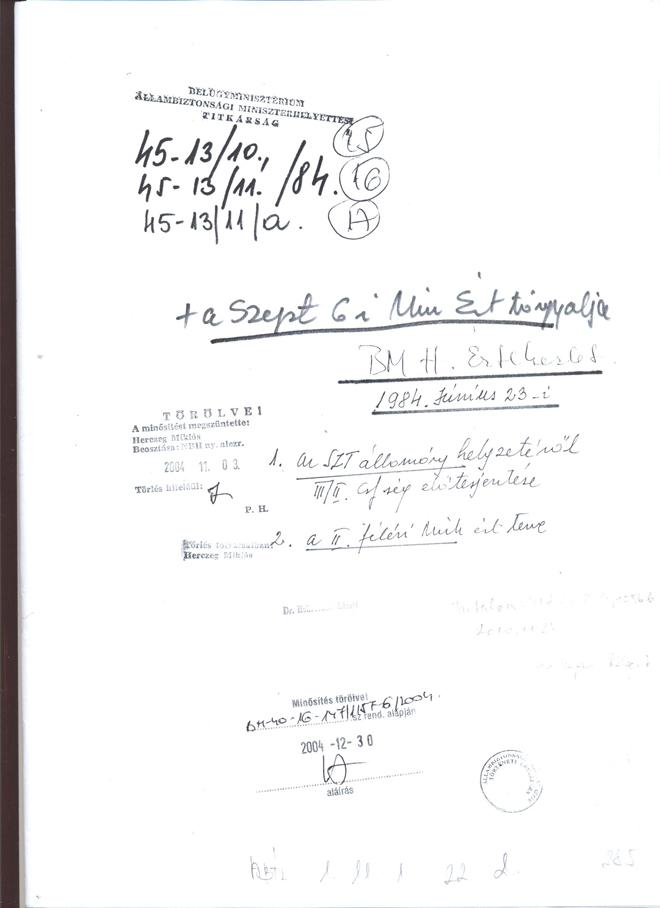 BELÜGYMINISZTÉRIUM
ÁLLAMBIZTONSÁGI MINISZTERHELYETTESI
TITKÁRSÁG
45-13/10., 15
45-13/11. /84. 16
45-13/11/a. 17
+ a Szept 6 i Min Ért tárgyalja
BM H. Értekezlet.
1984. Június 23-i
TÖRÖLVE!
A minősítést megszüntette:
Herczeg Miklós
Beosztása: NBH ny. alezr.
2004 11. 03.
Törlés hiteléül:
P. H.
1. az SZT állomány helyzetéről
III/II. Csf ség előterjesztése
Herczeg Miklós
2. a II. félévi Min ért terve
Dr.
Minősítés törölve!
BM-40-16-147/1/57-6/2004.
sz rend. alapján
2004 -12- 30
aláírás
ÁLLAMBIZTONSÁGI
TÖRTÉNETI
285